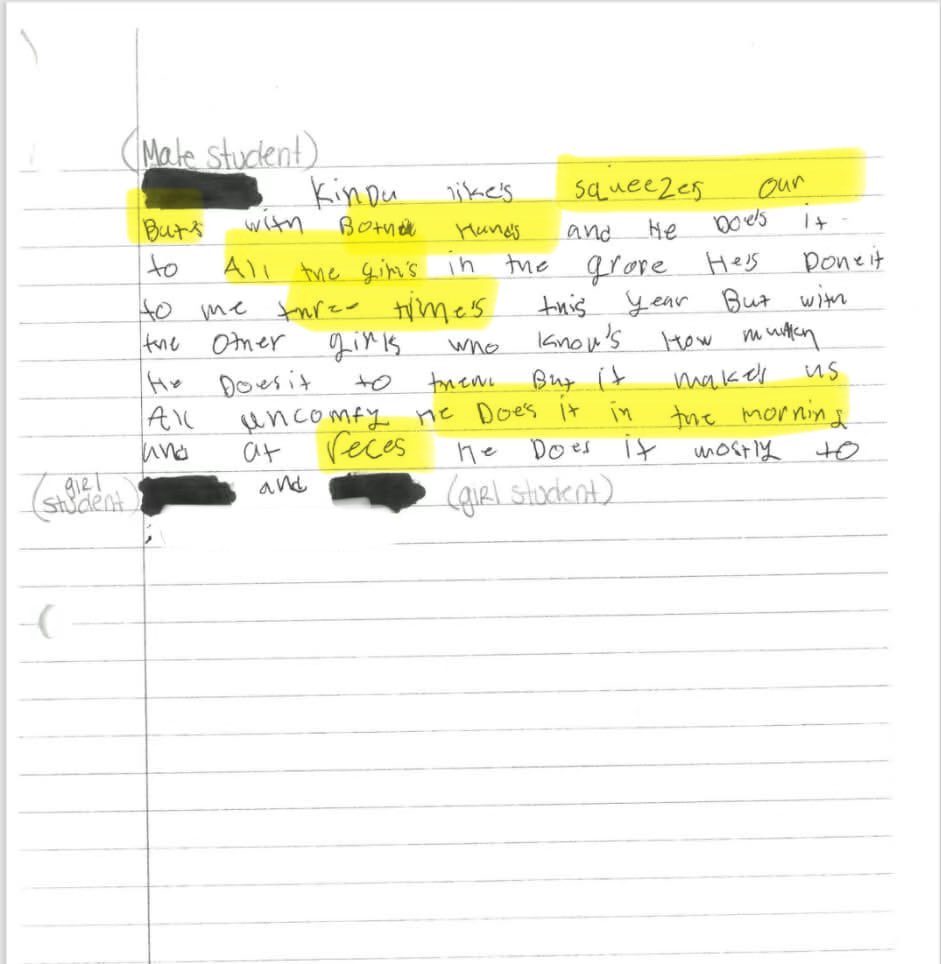 (Male student)
Kinda like's squeezes our
But's with Both Hands and He Does it
to All the girl's in the grove He's Done it
to me three times this year But with
the Other girls who know's How
He Does it to them But it makes us
All uncomfy He Does it in the morning
and at reces He Does it mostly to
(girl student) and (girl student)